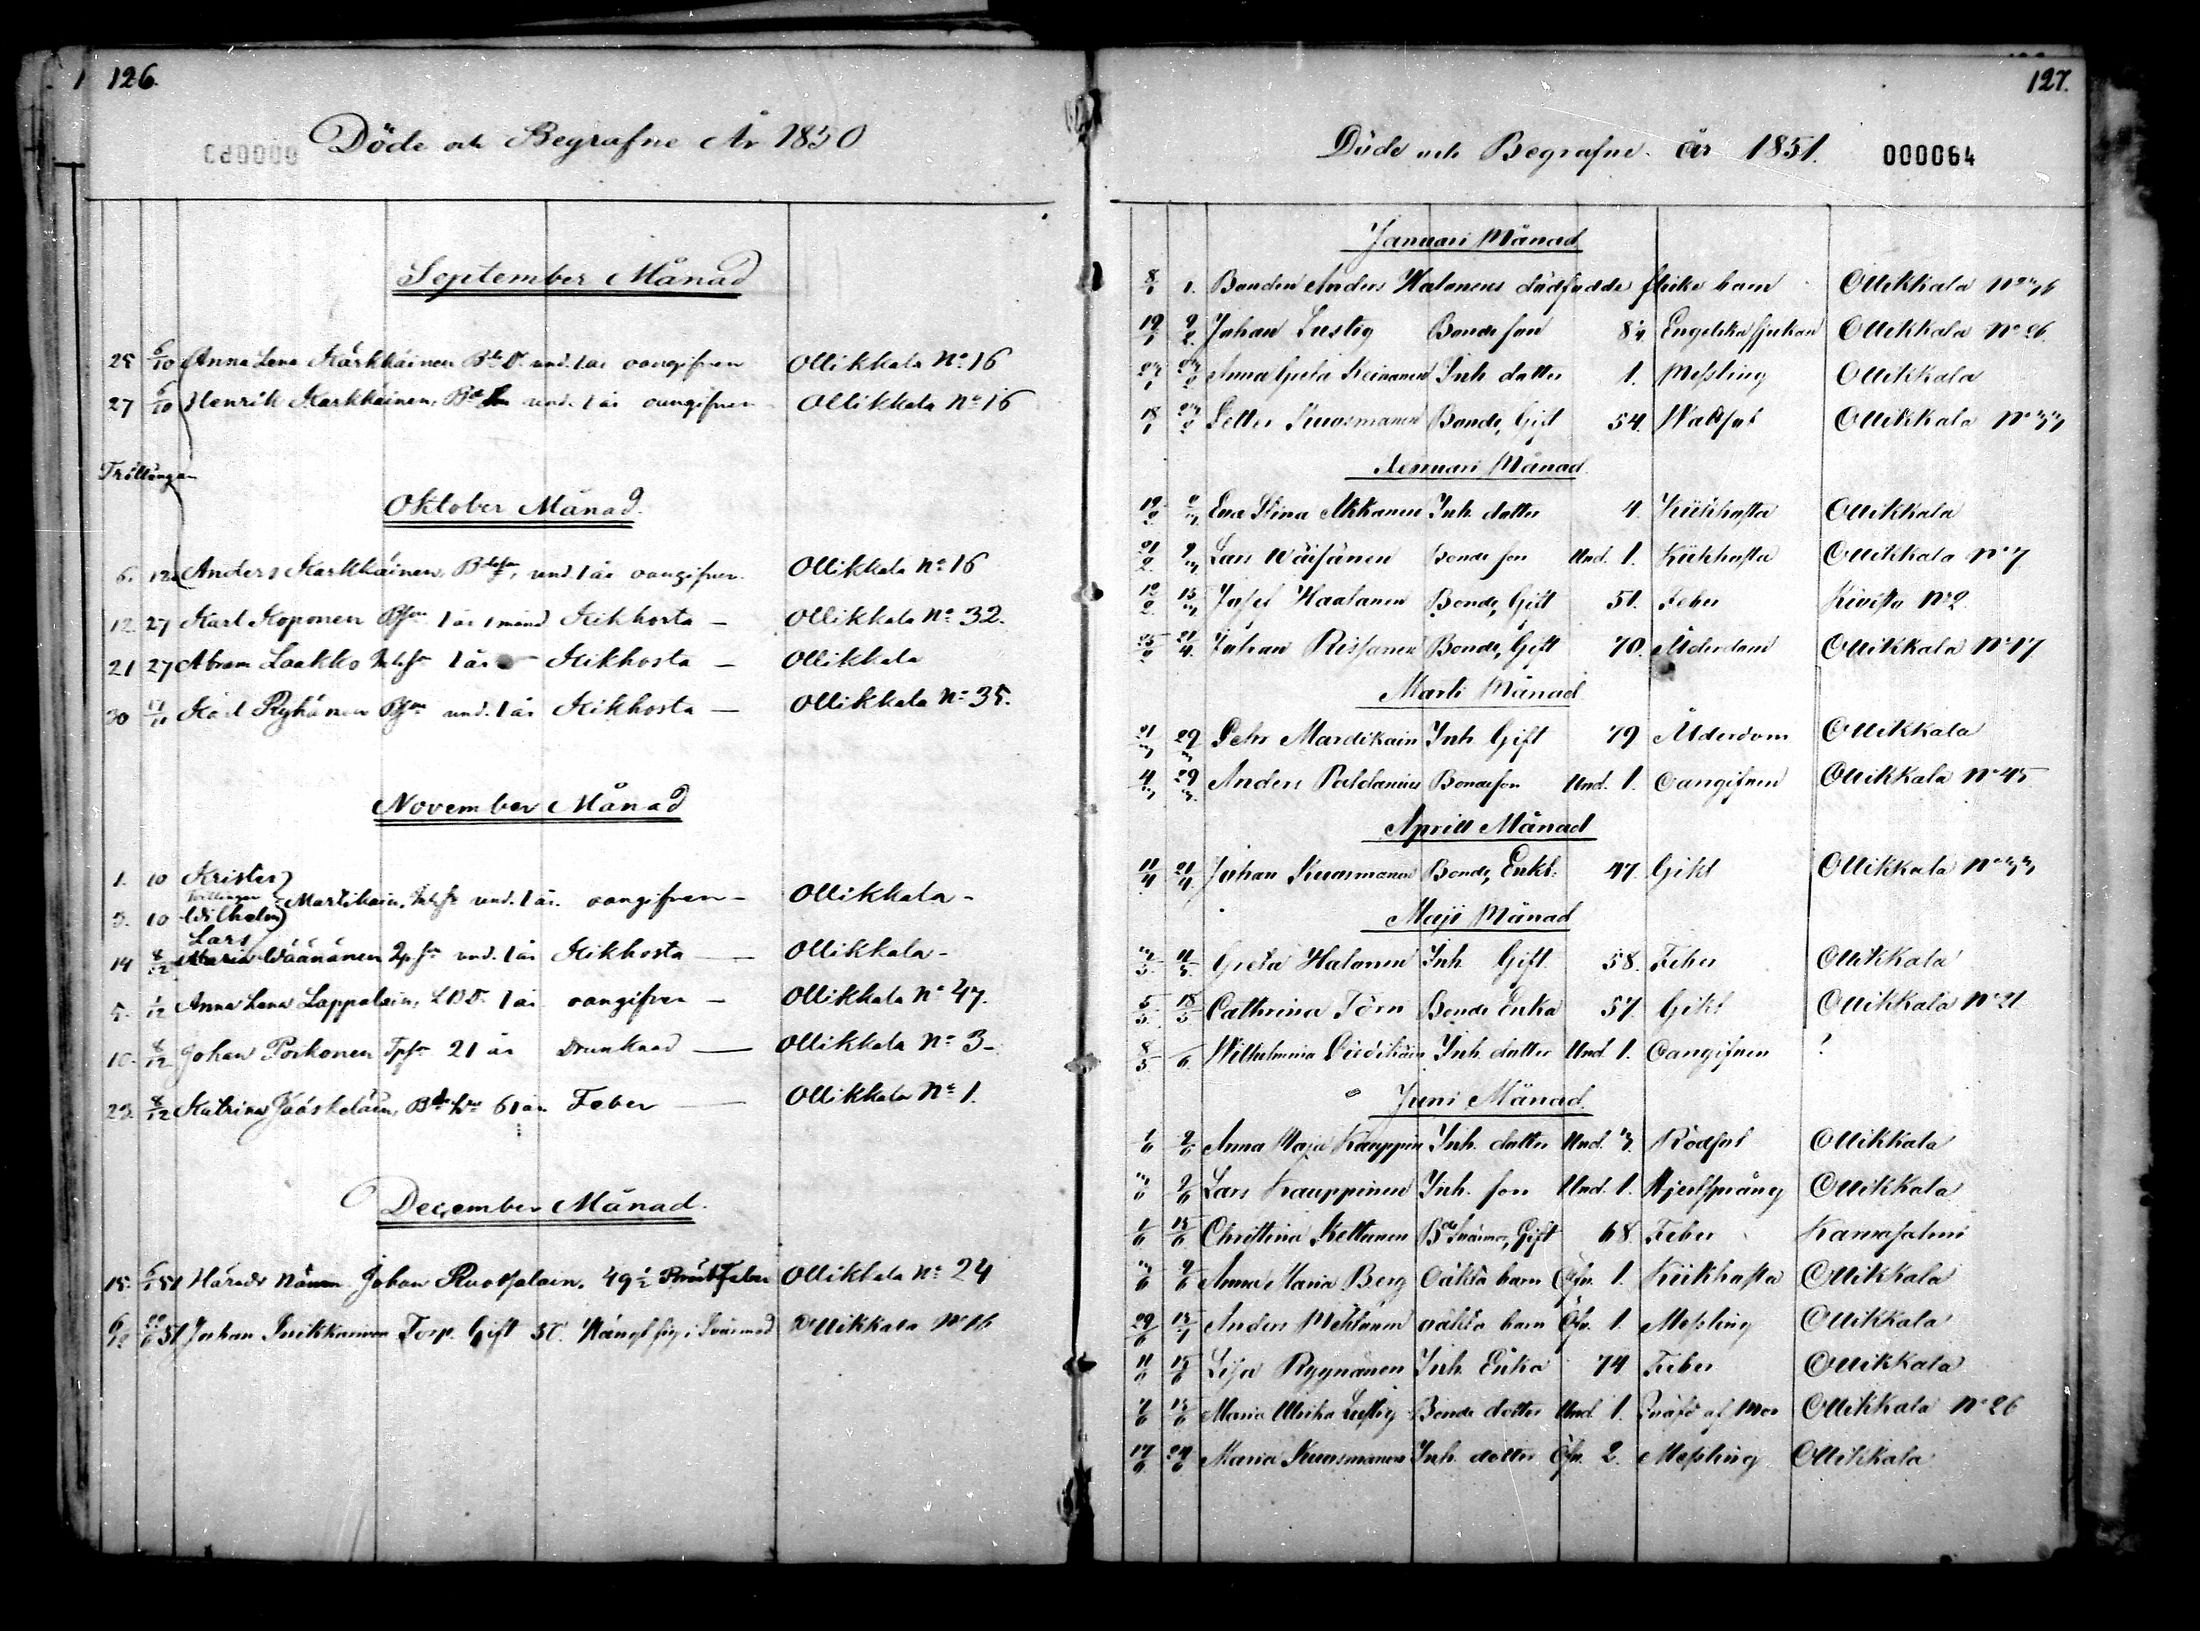 126.
Döde och Begrafne År 1850
September Månad
25 6/10 Anna Lena Kärkkäinen Bde D. und. 1 år oangifven Ollikkala No 16
27 6/10 Henrik Karkkäinen, und. 1 år oangifven Ollikkala No 16
Trillingar
Oktober Månad.
6. 12 Anders Karkkäinen, und. 1 år oangifven. Ollikkala No 16
12. 27 Karl Koponen Bson 1 år 1 månd Kikhosta — Ollikkala No 32.
21 27 Abram Laakko Inhsn 1 år — Kikhosta — Ollikkala
30 17/11 Karl Ryhänen Bson und. 1 år Kikhosta — Ollikkala No 35.
November Månad
1. 10 Krister
Tvillingar Martikain, Inhsn und. 1 år. oangifven — Ollikkala -
3. 10 Wilhelm
Lars
14 8/12 Wäänänen und. 1 år Kikhosta — Ollikkala -
5. 1/12 Anna Lena Lappalain, 1 år oangifven — Ollikkala No 47.
10. 8/12 Johan Poikonen Tpsn 21 år Drunknad — Ollikkala No 3 -
23. 8/12 Katrina Jääskeläin, 61 år Feber — Ollikkala No 1.
December Månad.
15. 6/1 51 Härads Nämn. Johan Ruotsalain, 49 1/2 Feber Ollikkala No 24
6/12 51 Johan Torp. Gift 50. Hängt sig i Ollikkala No 16
127.
Döde och Begrafne år 1851.
000064
Januari Månad
8/1 1. Bonden Anders Halonens dödfödde flicke barn Ollikkala No 36
19/1 2/2 Johan Lustig Bonde son 8 1/2 Engelska sjukan Ollikkala No 26.
Anna Greta Keinanen Inh. dotter 1. Messling Ollikkala
18/1 Petter Kuosmanen Bonde, Gift 54. Wattsot Ollikkala No 33
Februari Månad
19/2 Eva Stina Akkanen Inh. dotter 4. Kikhosta Ollikkala
21/2 Lars Wäisänen Bonde son Und. 1. Kikhosta Ollikkala No 7
15/3 Josef Haalanen Bonde, Gift 51. Feber Kivisto No 2
25/2 21/4 Johan Rissanen Bonde, Gift 70. Ålderdom Ollikkala No 17.
Marti Månad
21/3 29/3 Pehr Mardikain Inh. Gift 79 Ålderdom Ollikkala
4/3 29/3 Anders Paldanius Bondeson Und. 1. Oangifven Ollikkala No 45
Aprill Månad
11/4 21/4 Johan Kuosmanen Bonde, Enkl. 47. Gikt Ollikkala No 33
Maji Månad
3/5 11/5 Greta Halonen Inh. Gift. 58. Feber Ollikkala
5/5 18/5 Cathrina Törn Bonde Enka 57. Gikt Ollikkala No 21
8/5 /6 Wilhelmina Inh. dotter Und. 1. Oangifven ?
Juni Månad.
1/6 2/6 Anna Maja Kauppin Inh. dotter Und. 3. Rödsot Ollikkala
3/6 9/6 Lars Kauppinen Inh. son Und. 1. Hjertsprång Ollikkala
1/6 15/6 Christina Kettunen Bde Svärmor, Gift 68. Feber Kannasalmi
3/6 9/6 Anna Maria Berg oäkta barn Öfv. 1. Kikhosta Ollikkala
29/6 13/7 Anders oäkta barn Öfv. 1. Messling Ollikkala
11/6 15/6 Lisa Ryynänen Inh. Enka 74 Feber Ollikkala
7/6 15/6 Maria Ulrika Lustig Bonde dotter Und. 1. Qväfd af Mor Ollikkala No 26
17/6 29/6 Maria Kuosmanen Inh. dotter Öfv. 2. Messling Ollikkala